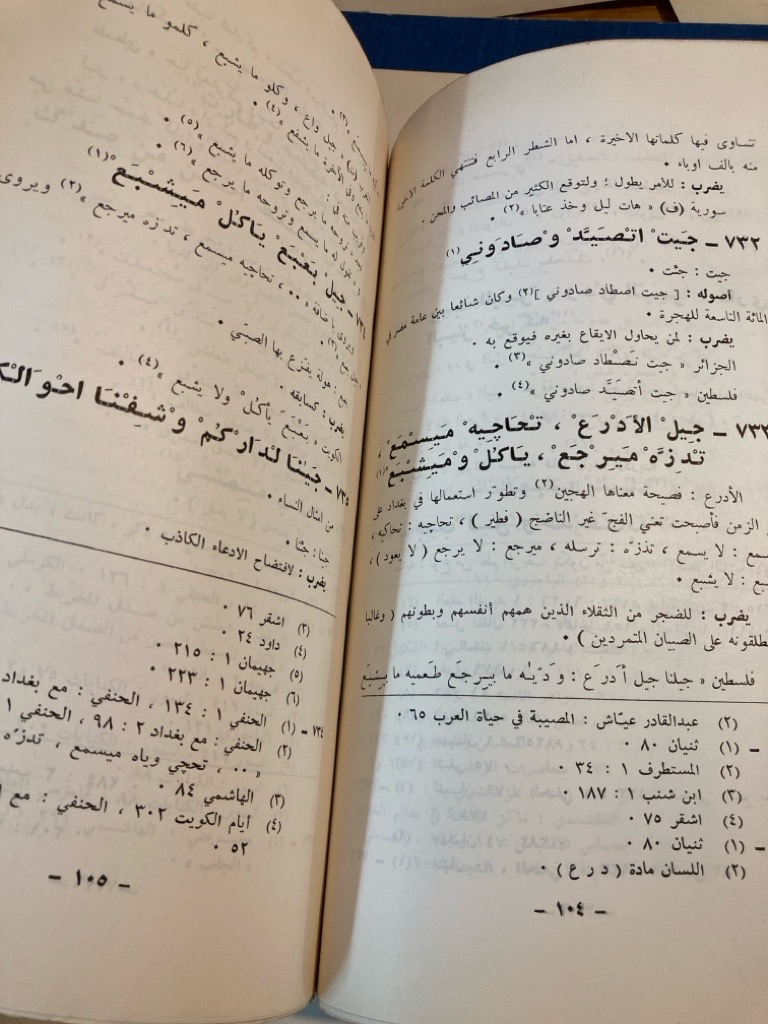 تتساوى فيها كلماتها الاخيرة ، اما الشطر الرابع فتنتهي الكلمة الأخيرة
منه بالف اوباء ٠
يضرب : للأمر يطول ؛ ولتوقع الكثير من المصائب والمحن ٠
سورية (ف) « هات ليل وخذ عتابا »(٢) ٠
٧٣٢ ـ جَيتْ اتْصَيَّدْ وْصَادَوني(١)
جيت : جئت ٠
أصوله : [ جيت اصطاد صادوني ](٢) وكان شائعا بين عامة مصر في
المائة التاسعة للهجرة ٠
يضرب : لمن يحاول الايقاع بغيره فيوقع به ٠
الجزائر « جيت نَصْطاد صادوني »(٣) ٠
فلسطين « جيت أتصَيَّد صادوني »(٤) ٠
٧٣٣ ـ جِيلْ الأَدْرَعْ ، تْحَاچيهْ مَيِسْمَعْ ،
تْدِزَّه مَيِرْجَعْ ، ياكُلْ وْمَيِشْبَعْ(١)
الأدرع : فصيحة معناها الهجين(٢) وتطوّر استعمالها في بغداد على
الزمن فأصبحت تعني الفجّ غير الناضج ( فطير ) ، تحاچيه : تحاكيه ،
سمع : لا يسمع ، تذزّه : ترسله ، ميرجع : لا يرجع ( لا يعود ) ،
: لا يشبع ٠
يضرب : للضجر من الثقلاء الذين همهم أنفسهم وبطونهم ( وغالبا
يطلقونه على الصبيان المتمردين ) ٠
فلسطين « جيلنا جيل أدرع : ودّيْه ما بيرجع طعميه ما بيشبع
(٢) عبدالقادر عيّاش : المصيبة في حياة العرب ٦٥ ٠
ـ (١) ثنيان ٨٠ ٠
(٢) المستطرف ١ : ٣٤ ٠
(٣) ابن شنب ١ : ١٨٧ ٠
(٤) اشقر ٧٥ ٠
ـ (١) ثنيان ٨٠ ٠
(٢) اللسان مادة ( د ر ع ) ٠
ـ ١٠٤ ـ
جيل واع ، وكلو ما يشبع ، كلمو ما يسمع
زوجه ما يرجع وتوكله ما يشبع »(٥) ٠
ما يسمع وتزوحه ما يرجع »(٦) ٠
٧٣٤ ـ جيل بَعْبَعْ ياكلْ مَيِشْبَعْ(١)
٠٠ ، تحاچيه ميسمع ، تدزه ميرجع »(٢) ويروى
: حولة يفزع بها الصبي ٠
يضرب : كسابقه ٠
الكويت « بَعْبَعْ ياكُلْ ولا يشبع »(٤) ٠
٧٣٥ ـ جَيْنا لْدَارْكُمْ وْشِفْنَا احْوَالْكُ
من امثال النساء ٠
جينا : جئنا ٠
يضرب : لافتضاح الادعاء الكاذب ٠
(٣) اشقر ٧٦ ٠
(٤) داود ٢٤ ٠
(٥) جهيمان ١ : ٢١٥ ٠
(٦) جهيمان ١ : ٢٢٣ ٠
٧٣٤ ـ (١) الحنفي ١ : ١٣٤ ، الحنفي : مع بغداد
(٢) الحنفي : مع بغداد ٢ : ٩٨ ، الحنفي ١
« ٠٠ ، تحجي وياه ميسمع ، تدزّه
(٣) الهاشمي ٨٤ ٠
(٤) أيام الكويت ٣٠٢ ، الحنفي : مع
٥٢ ٠
ـ ١٠٥ ـ